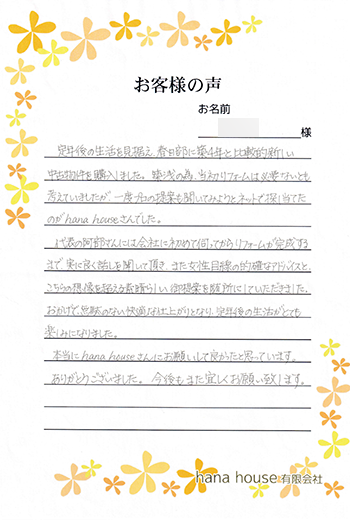 お客様の声
お名前
様
定年後の生活を見据え、春日部に築4年と比較的新しい
中古物件を購入しました。築浅の為、当初リフォームは必要ないとも
考えていましたが、一度プロの提案も聞いてみようとネットで探し当てた
のがhana houseさんでした。
代表の阿部さんには会社に初めて伺ってからリフォームが完成する
まで、実に良く話しを聞いて頂き、また女性目線の的確なアドバイスと、
こちらの想像を超える素晴らしい御提案を随所にしていただきました。
おかげで、無駄のない快適な仕上がりとなり、定年後の生活がとても
楽しみになりました。
本当にhana houseさんにお願いして良かったと思っています。
ありがとうございました。今後もまた宜しくお願い致します。
hana house 有限会社